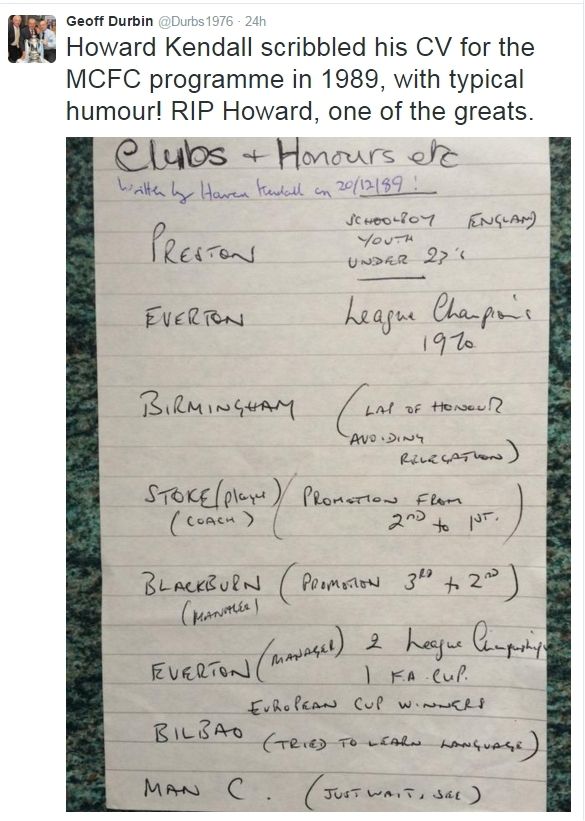 Geoff Durbin @Durbs1976 · 24h
Howard Kendall scribbled his CV for the
MCFC programme in 1989, with typical
humour! RIP Howard, one of the greats.
Clubs + Honours etc
Written by Howard Kendall on 20/12/89!
PRESTON SCHOOLBOY ENGLAND
YOUTH
UNDER 23's
EVERTON League Champions
1970
BIRMINGHAM (LAP OF HONOUR
AVOIDING
RELEGATION)
STOKE (player) (PROMOTION FROM
(COACH) 2ND to 1ST.)
BLACKBURN (PROMOTION 3RD to 2ND)
(MANAGER)
EVERTON (MANAGER) 2 League Championships
1 F.A. CUP.
EUROPEAN CUP WINNERS
BILBAO (TRIED TO LEARN LANGUAGE)
MAN C. (JUST WAIT, SEE)